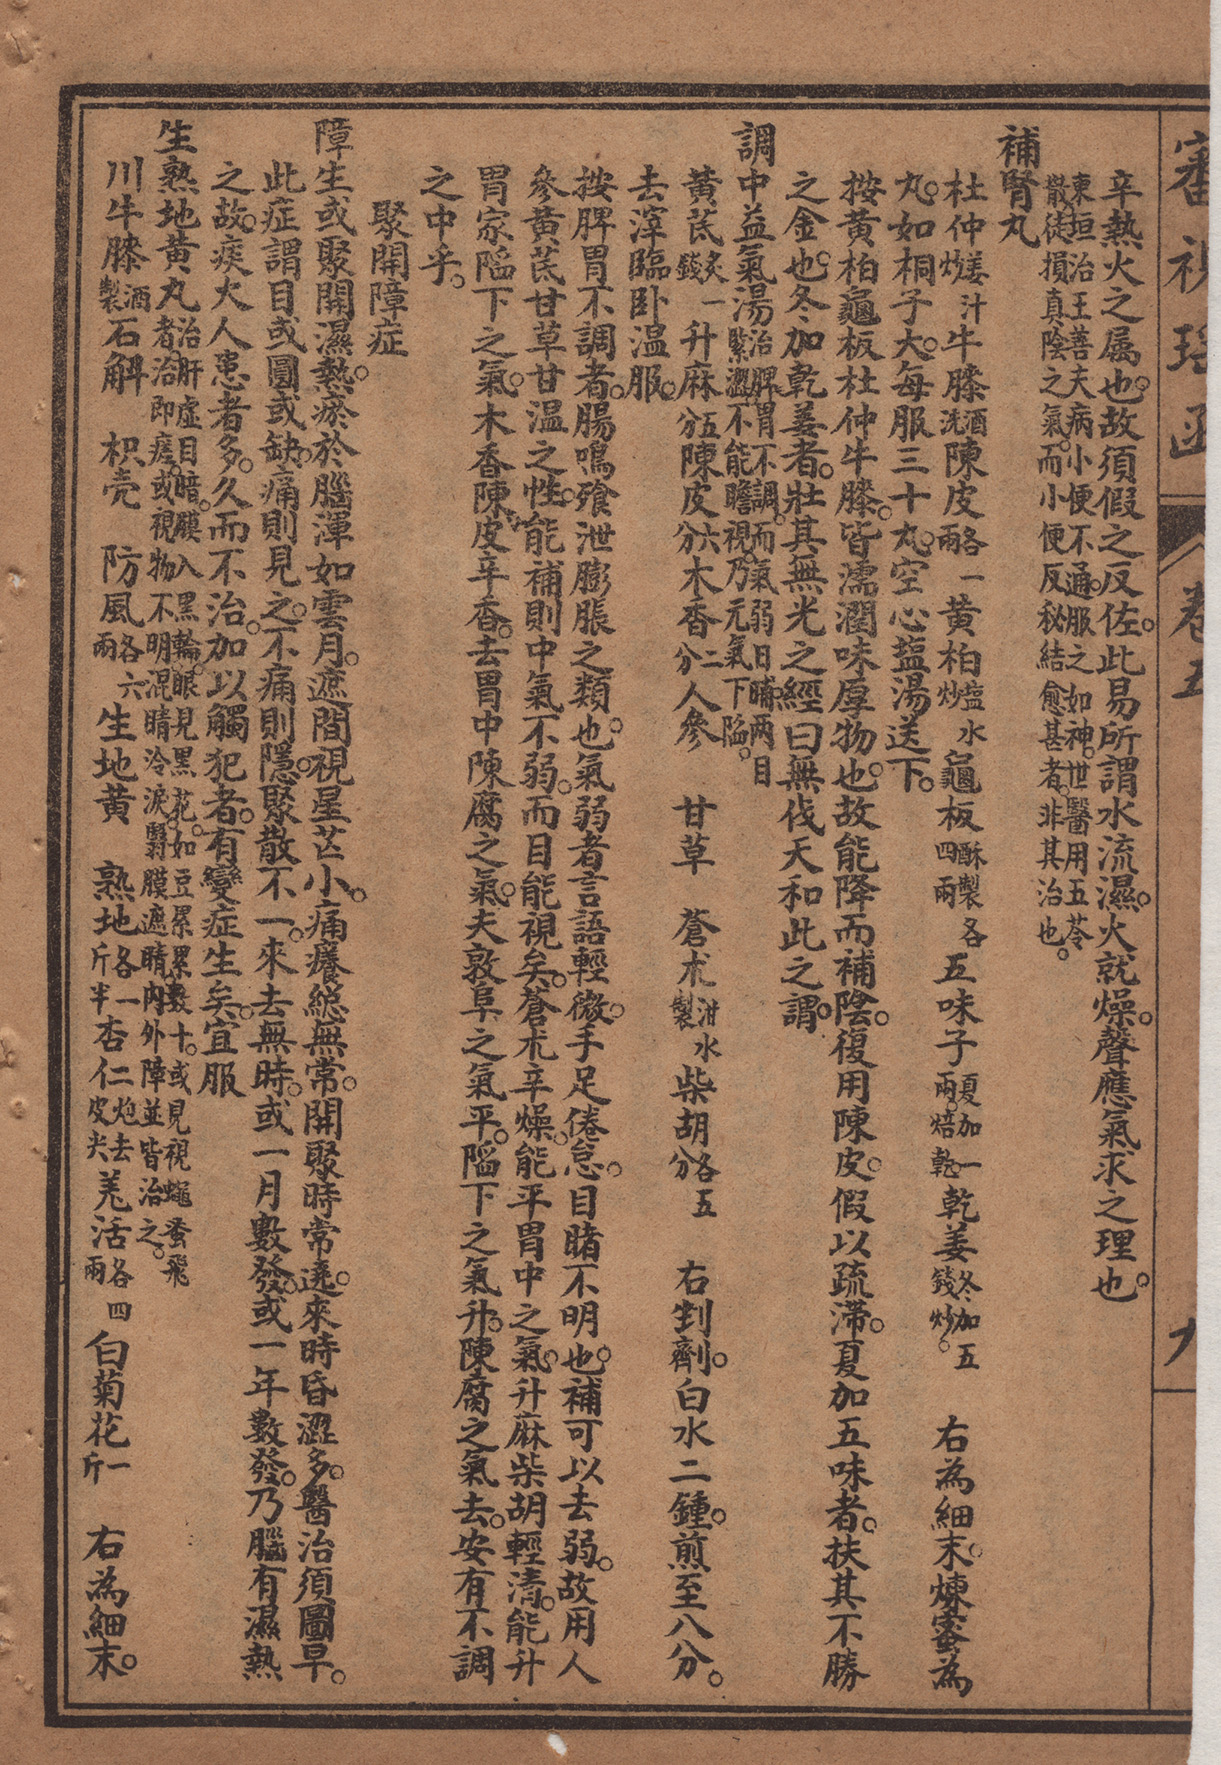 審視瑤函
卷五
九
辛熱火之属也。故須假之反佐。此易所謂水流濕。火就燥。聲應氣求之理也。
東垣治王善夫病小便不通。服之如神。世醫用五苓
散徒損真陰之氣。而小便反秘結愈甚者。非其治也。
補腎丸
杜仲薑汁炒牛膝酒洗陳皮各一兩黄柏塩水炒龜板酥製各四兩五味子夏加一兩焙乾乾姜冬加五錢炒。右為細末。煉蜜為
丸。如桐子大。每服三十丸。空心塩湯送下。
按黄柏龜板杜仲牛膝。皆濡潤味厚物也。故能降而補陰。復用陳皮。假以疏滯。夏加五味者。扶其不勝
之金也。冬加乾姜者。壯其無光之經曰無伐天和此之謂。
調中益氣湯治脾胃不調。而氣弱日晡。两目
緊澀。不能瞻視。乃元氣下陷。
黃茋炙一錢升麻五分陳皮六分木香二分人參 甘草 蒼朮泔水製柴胡各五分 右剉劑。白水二鍾。煎至八分。
去滓臨卧温服。
按脾胃不調者。腸鳴飱泄膨脹之類也。氣弱者言語輕微。手足倦怠。目睹不明也。補可以去弱。故用人
參黃茋甘草甘温之性。能補則中氣不弱。而目能視矣。蒼朮辛燥。能平胃中之氣。升麻柴胡輕清。能升
胃家陷下之氣。木香陳皮辛香。去胃中陳腐之氣。夫敦阜之氣平。陷下之氣升。陳腐之氣去。安有不調
之中乎。
聚開障症
障生或聚開濕熱。瘀於腦渾如雲月。遮間視星芒小。痛癢緦無常。開聚時常遶。來時昏澀多。醫治須圖早。
此症謂目或圓或缺。痛則見之。不痛則隱。聚散不一。來去無時。或一月數發。或一年數發。乃腦有濕熱
之故。痰火人患者多。久而不治。加以觸犯者。有變症生矣。宜服
生熟地黄丸治肝虛目暗。膜入黑輪。眼見黑花。如豆累累數十。或見視蠅蚤飛
者。治即瘥。或視物不明。混睛泠淚。翳膜遮睛。內外障並皆治之。
川牛膝酒製石觧 枳壳 防風各六兩生地黄 熟地各一斤半杏仁二炮去皮尖羗活各四兩白菊花一斤 右為細末。